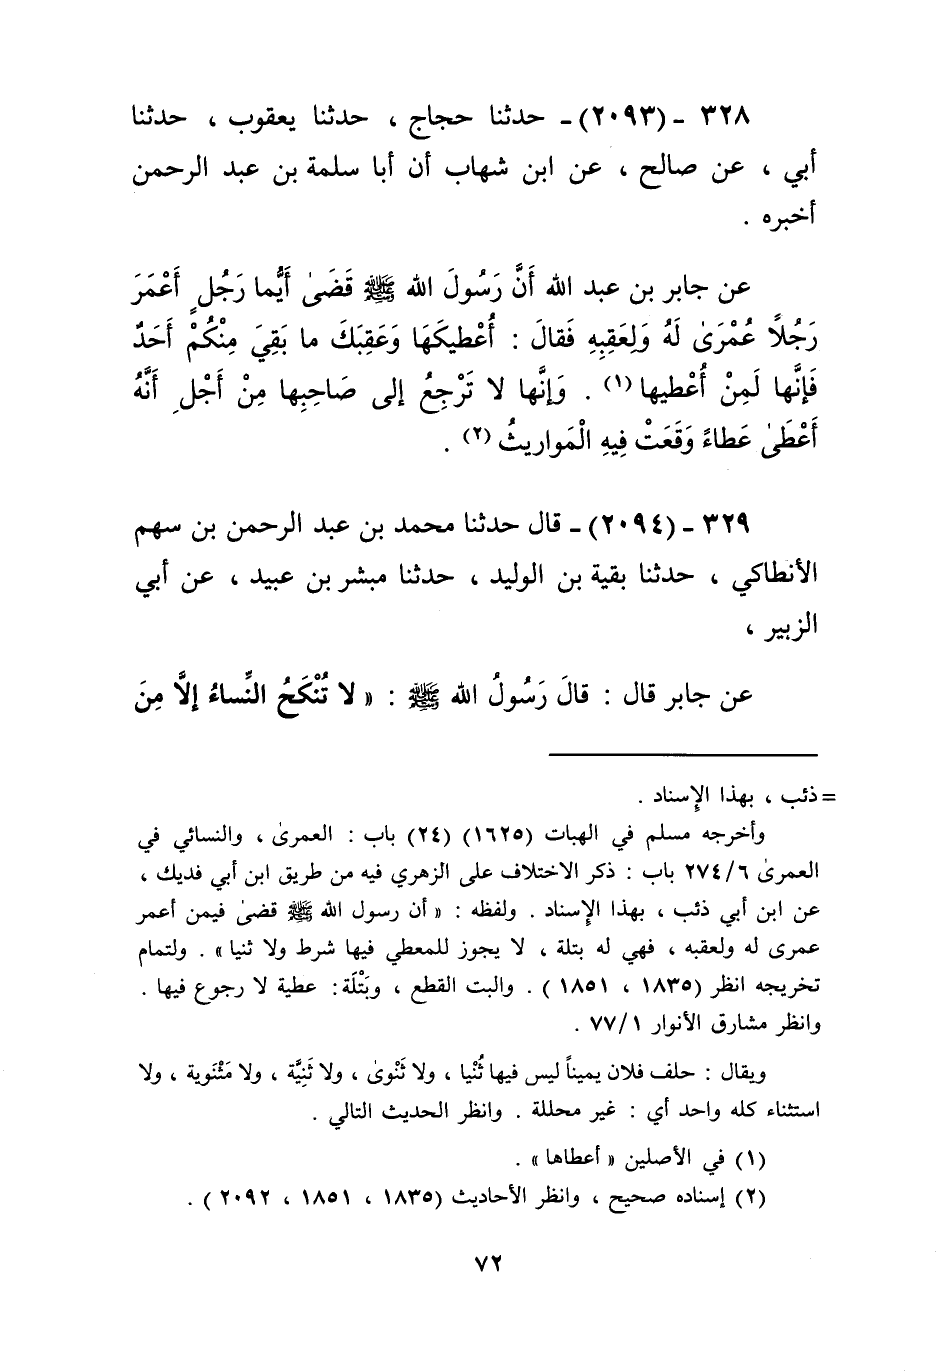 ٣٢٨ - (٢٠٩٣) - حدثنا حجاج ، حدثنا يعقوب ، حدثنا
أبي ، عن صالح ، عن ابن شهاب أن أبا سلمة بن عبد الرحمن
أخبره .
عن جابر بن عبد الله أَنَّ رَسُولَ الله ﷺ قَضَىٰ أَيُّما رَجُلٍ أَعْمَرَ
رَجُلاً عُمْرَىٰ لَهُ وَلِعَقِبِهِ فَقالَ : أُعْطِيكَهَا وَعَقِبَكَ ما بَقِيَ مِنْكُمْ أَحَدٌ
فَإنَّها لَمِنْ أُعْطيها (١) . وَإنَّها لا تَرْجِعُ إلى صَاحِبِها مِنْ أَجْلِ أَنَّهُ
أَعْطَىٰ عَطاءً وَقَعَتْ فِيهِ الْمَواريثُ (٢) .
٣٢٩ - (٢٠٩٤) - قال حدثنا محمد بن عبد الرحمن بن سهم
الأنطاكي ، حدثنا بقية بن الوليد ، حدثنا مبشر بن عبيد ، عن أبي
الزبير ،
عن جابر قال : قالَ رَسُولُ الله ﷺ : « لا تُنْكَحُ النِّساءُ إلاَّ مِنَ
= ذئب ، بهذا الإسناد .
وأخرجه مسلم في الهبات (١٦٢٥) (٢٤) باب : العمرىٰ ، والنسائي في
العمرىٰ ٢٧٤/٦ باب : ذكر الاختلاف على الزهري فيه من طريق ابن أبي فديك ،
عن ابن أبي ذئب ، بهذا الإسناد . ولفظه : « أن رسول الله ﷺ قضىٰ فيمن أعمر
عمرى له ولعقبه ، فهي له بتلة ، لا يجوز للمعطي فيها شرط ولا ثنيا » . ولتمام
تخريجه انظر (١٨٣٥ ، ١٨٥١ ) . والبت القطع ، وبَتْلَة : عطية لا رجوع فيها .
وانظر مشارق الأنوار ٧٧/١ .
ويقال : حلف فلان يميناً ليس فيها ثُنْيا ، ولا ثَنْوىٰ ، ولا ثَنِيَّة ، ولا مَثْنَوية ، ولا
استثناء كله واحد أي : غير محللة . وانظر الحديث التالي .
(١) في الأصلين « أعطاها » .
(٢) إسناده صحيح ، وانظر الأحاديث (١٨٣٥ ، ١٨٥١ ، ٢٠٩٢ ) .
٧٢